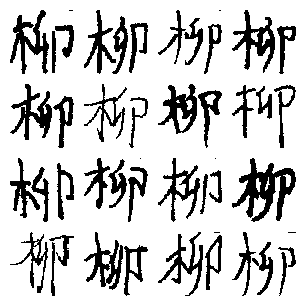 柳柳柳柳
柳柳柳柳
柳柳柳柳
柳柳柳柳